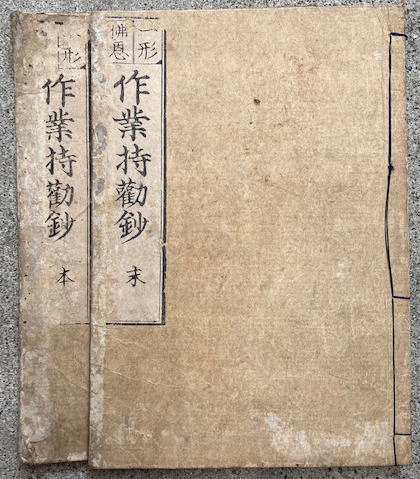 一形
佛恩
作業持勸鈔 末
一形
作業持勸鈔 本